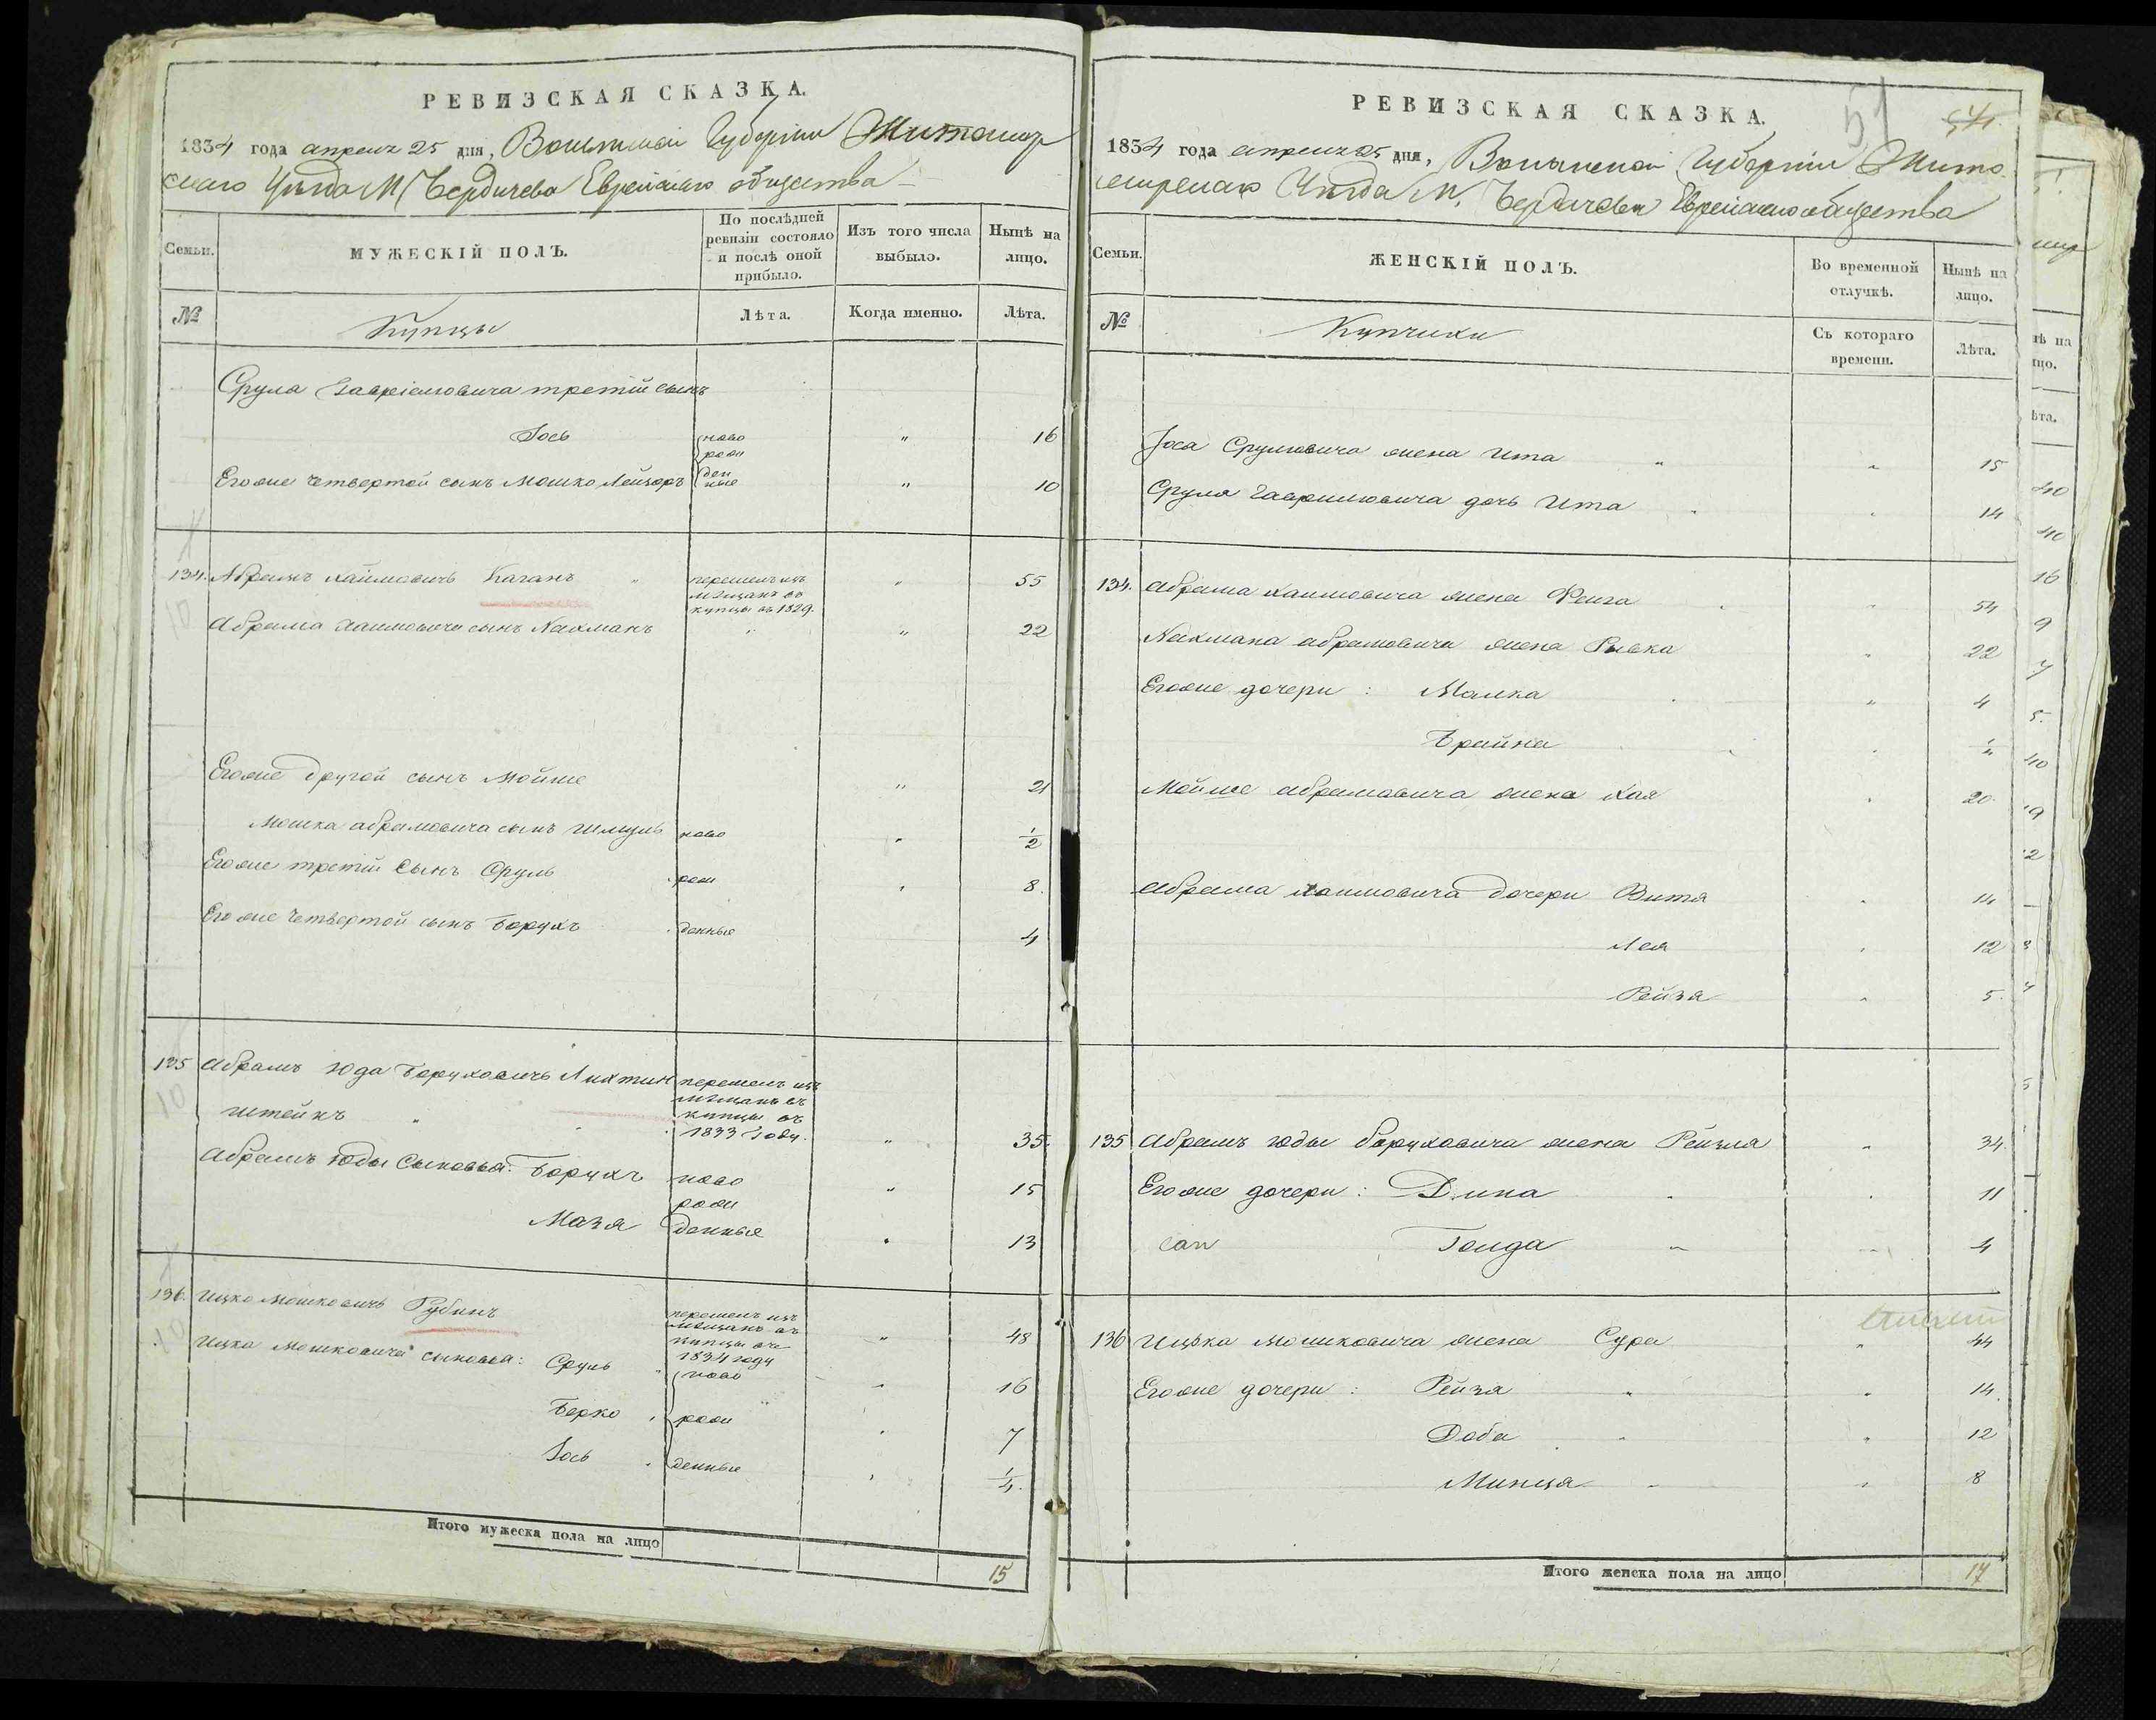 РЕВИЗСКАЯ СКАЗКА.
1834 года апреля 25 дня, Волынской Губерніи Житомир
скаго Уезда М. Бердичева Еврейскаго общества
Семьи.
МУЖЕСКІЙ ПОЛЪ.
По послѣдней ревизіи состояло и послѣ оной прибыло.
Изъ того числа выбыло.
Нынѣ на лицо.
№
Купцы
Лѣта.
Когда именно.
Лѣта.
Срула Гавріиловича третій сынъ
Іось ново 16
рож
Его же четвертой сынъ Мошко Лейзоръ ден ные " 10
134. Абрамъ Хаимовичъ Каганъ перешелъ изъ мѣщанъ въ купцы въ 1829. " 55
Абрама Хаимовича сынъ Нахманъ " " 22
Его же другой сынъ Мойше " 21
Мошка Абрамовича сынъ Шмуль ново " 1/2
Его же третій сынъ Сруль рож " 8.
Его же четвертой сынъ Борухъ денные 4
135 Абрамъ Юда Боруховичъ Лихтин перешелъ изъ
штейнъ мѣщанъ въ купцы въ 1833 году. " 35.
Абрамъ Юды сыновья: Борухъ ново " 15
рож
Мазя денные " 13
136. Ицко Мошковичъ Рубинъ перешелъ изъ мѣщанъ въ купцы въ 1834 году " 48
Ицка Мошковича сыновья: Сруль ново " 16
Берко рож " 7
Іось денные " 1/4.
Итого мужеска пола на лицо 15
РЕВИЗСКАЯ СКАЗКА.
51 54.
1834 года апреля 25 дня, Волынской Губерніи Жито
мирскаго Уезда М. Бердичева Еврейскаго общества
Семьи.
ЖЕНСКІЙ ПОЛЪ.
Во временной отлучкѣ.
Нынѣ на лицо.
№
Купчихи
Съ котораго времени.
Лѣта.
Іося Срулювича жена Ита " " 15
Сруля Гаврилювича дочь Ита " " 14
134. Абрама Хаимовича жена Фейга " " 54
Нахмана Абрамовича жена Рывка " 22
Его же дочери: Малка " 4
Брайна
Мойше Абрамовича жена Хая " 20.
Абрама Хаимовича дочери Витя " 14
Лея " 12
Рейзя " 5.
135 Абрамъ Юды Боруховича жена Рейзля " 34.
Его же дочери: Дина " 11
Голда " 4
136 Ицька Мошковича жена Сура " 44
Его же дочери: Рейзя " " 14.
Доба " " 12
Минця " " 8
Итого женска пола на лицо 17